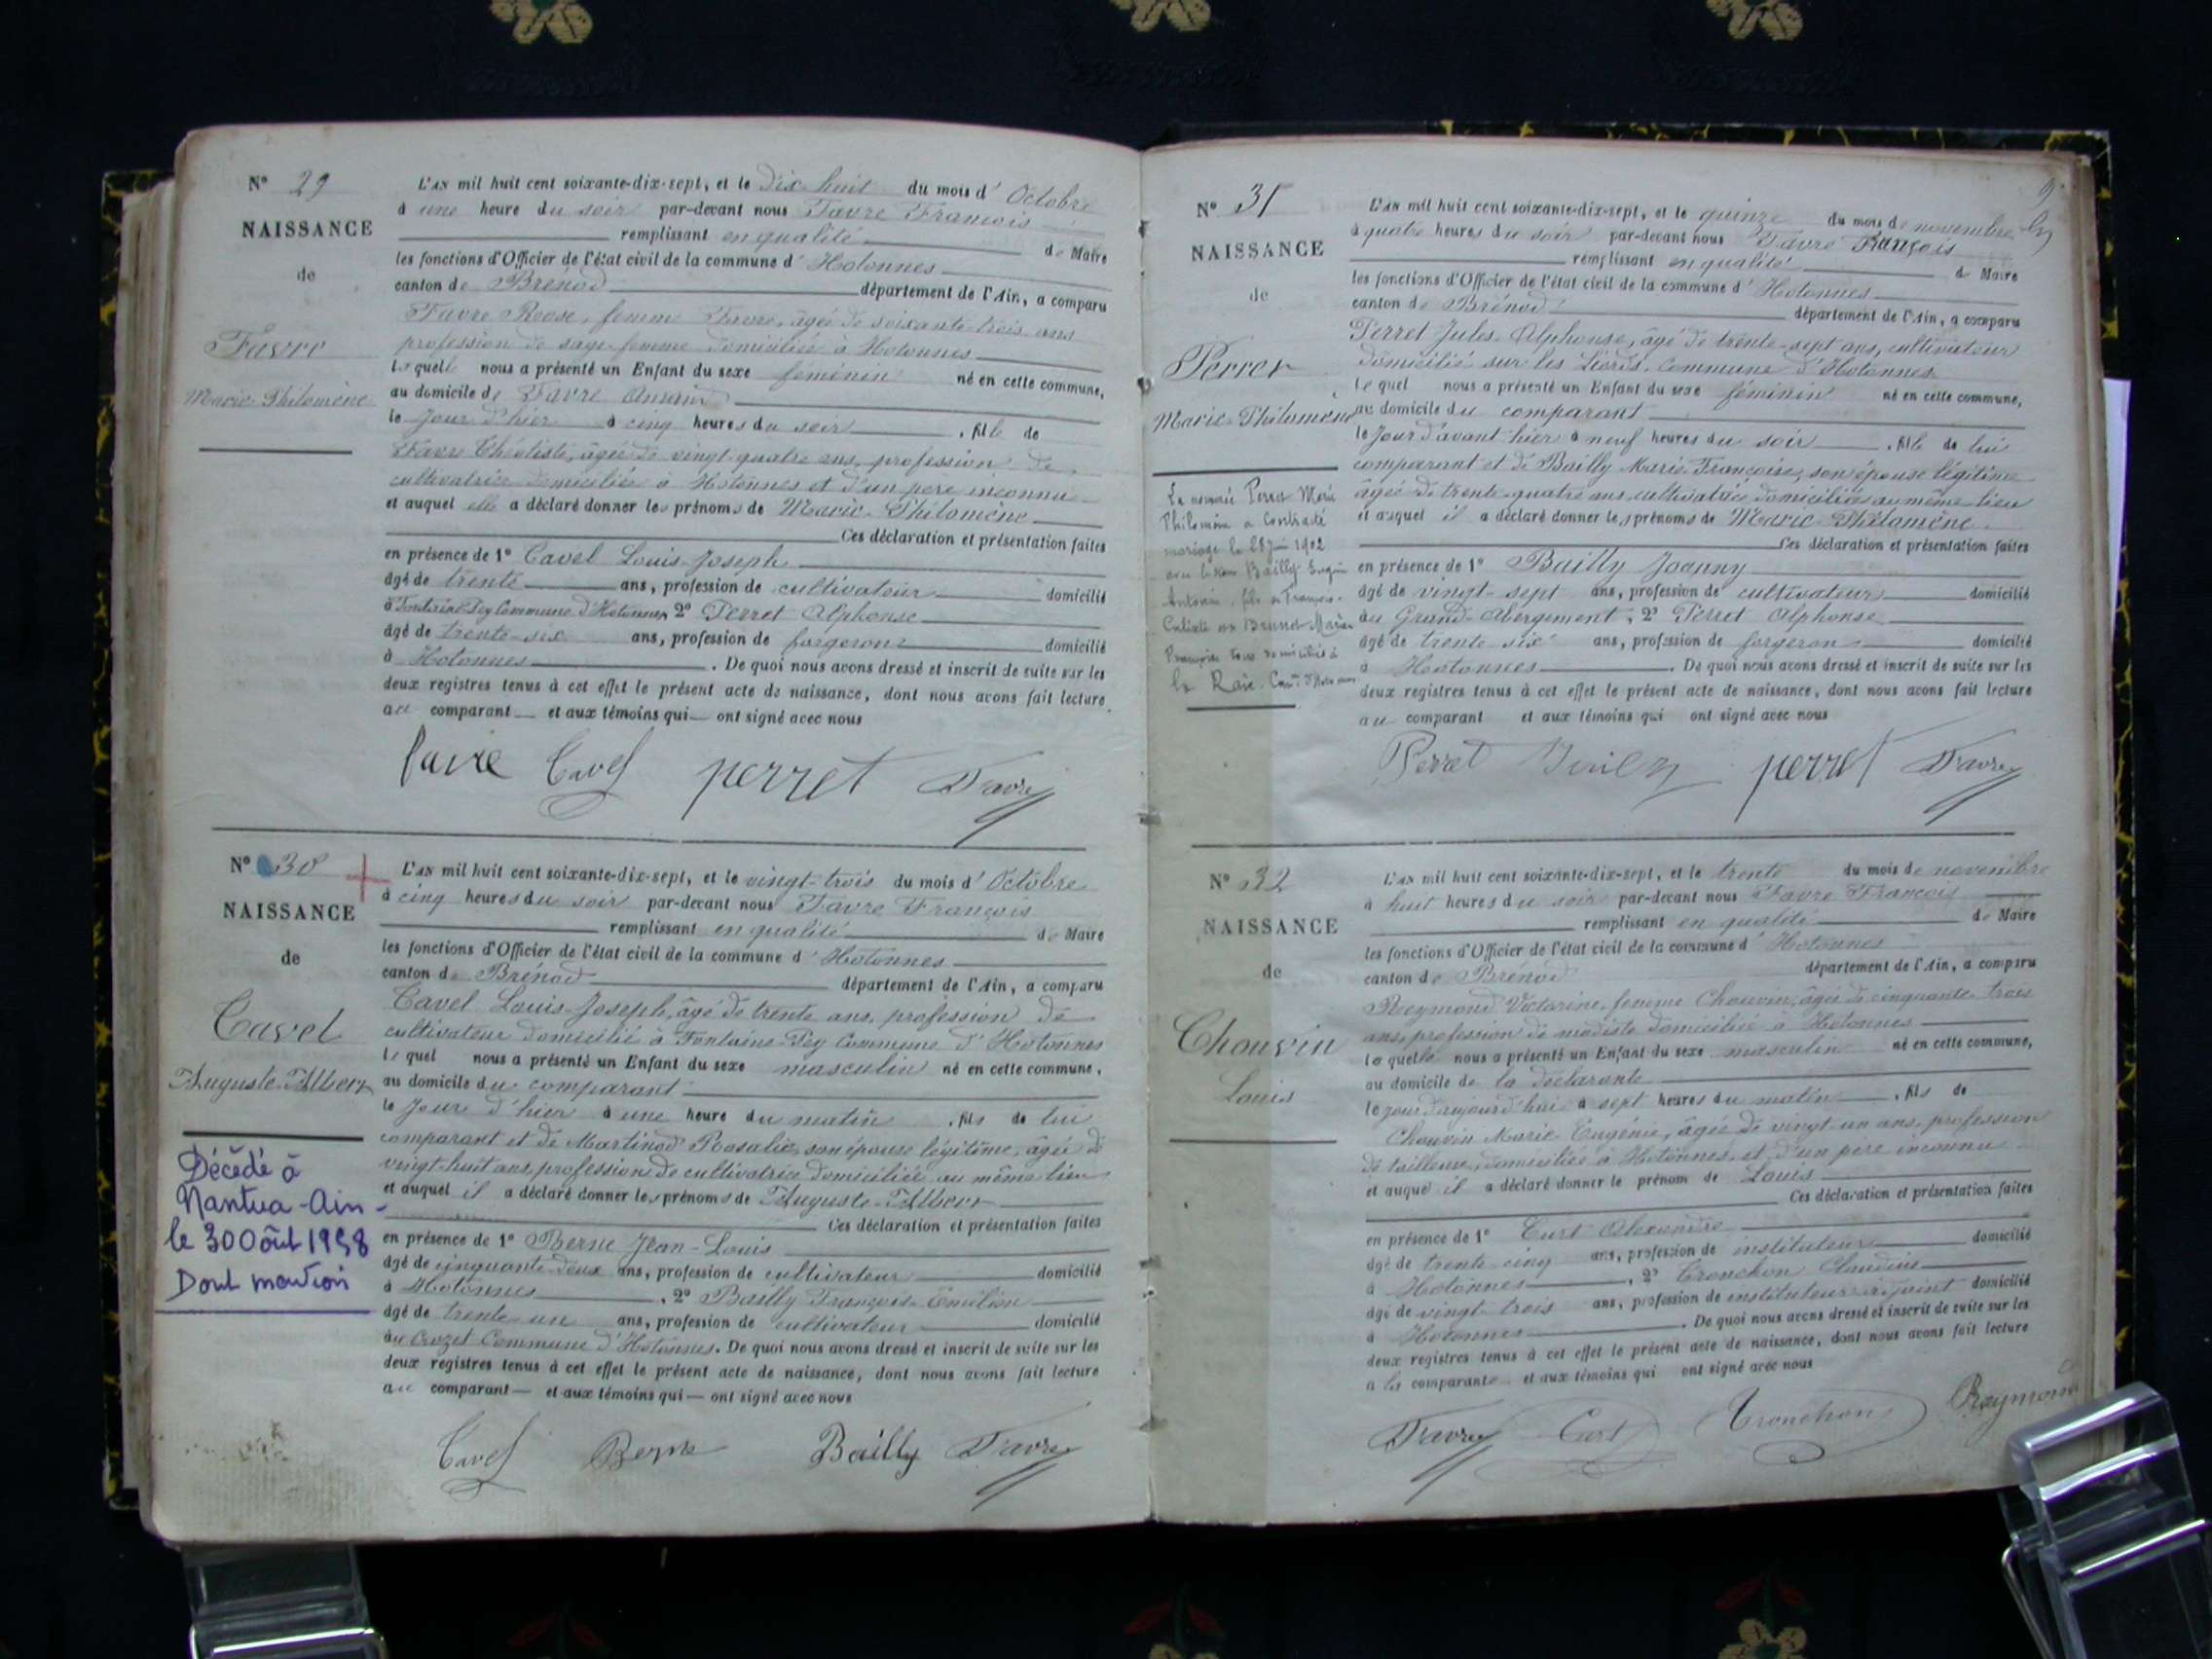 N° 29
NAISSANCE
de
Favre
Marie-Philomène
L'AN mil huit cent soixante-dix-sept, et le dix-huit du mois d'Octobre
à une heure du soir par-devant nous Favre François
remplissant en qualité de Maire
les fonctions d'Officier de l'état civil de la commune d'Hotonnes
canton de Brénod département de l'Ain, a comparu
Favre Roose, femme Favre, âgée de soixante-trois ans
profession de sage-femme domiciliée à Hotonnes
laquelle nous a présenté un Enfant du sexe féminin né en cette commune,
au domicile de Favre
le jour d'hier à cinq heures du soir, fille de
Favre, âgée de vingt-quatre ans, profession de
cultivatrice domiciliée à Hotonnes et d'un père inconnu
et auquel elle a déclaré donner les prénoms de Marie-Philomène
Ces déclaration et présentation faites
en présence de 1° Cavel Louis-Joseph
âgé de trente ans, profession de cultivateur domicilié
à Fontaine-Pey Commune d'Hotonnes 2° Perret Alphonse
âgé de trente-six ans, profession de forgeron domicilié
à Hotonnes. De quoi nous avons dressé et inscrit de suite sur les
deux registres tenus à cet effet le présent acte de naissance, dont nous avons fait lecture
au comparant et aux témoins qui ont signé avec nous
favre Cavel perret Favre
N° 30
NAISSANCE
de
Cavel
Auguste-Albert
Décédé à
Nantua-Ain-
le 30 Oût 1958
Dont mention
L'AN mil huit cent soixante-dix-sept, et le vingt-trois du mois d'Octobre
à cinq heures du soir par-devant nous Favre François
remplissant en qualité de Maire
les fonctions d'Officier de l'état civil de la commune d'Hotonnes
canton de Brénod département de l'Ain, a comparu
Cavel Louis-Joseph, âgé de trente ans, profession de
cultivateur domicilié à Fontaine-Pey Commune d'Hotonnes
lequel nous a présenté un Enfant du sexe masculin né en cette commune,
au domicile du comparant
le jour d'hier à une heure du matin, fils de lui
comparant et de Martinod Rosalie, son épouse légitime, âgée de
vingt-huit ans, profession de cultivatrice domiciliée au même lieu
et auquel il a déclaré donner les prénoms de Auguste-Albert
Ces déclaration et présentation faites
en présence de 1° Berne Jean-Louis
âgé de cinquante-deux ans, profession de cultivateur domicilié
à Hotonnes, 2° Bailly François-Emilien
âgé de trente-un ans, profession de cultivateur domicilié
au Crozet Commune d'Hotonnes. De quoi nous avons dressé et inscrit de suite sur les
deux registres tenus à cet effet le présent acte de naissance, dont nous avons fait lecture
au comparant et aux témoins qui ont signé avec nous
Cavel Berne Bailly Favre
N° 31
NAISSANCE
de
Perret
Marie-Philomène
La nommée Perret Marie
Philomène a contracté
mariage le 28 1902
avec le Bailly
Antonin, fils de François-
Calixte et Brunet Marie
Françoise tous domiciliés à
la Raie
L'AN mil huit cent soixante-dix-sept, et le quinze du mois de novembre
à quatre heures du soir par-devant nous Favre François
remplissant en qualité de Maire
les fonctions d'Officier de l'état civil de la commune d'Hotonnes
canton de Brénod département de l'Ain, a comparu
Perret Jules-Alphonse, âgé de trente-sept ans, cultivateur
domicilié sur les Liords, Commune d'Hotonnes
lequel nous a présenté un Enfant du sexe féminin né en cette commune,
au domicile du comparant
le jour d'avant-hier à neuf heures du soir, fille de lui
comparant et de Bailly Marie-Françoise, son épouse légitime
âgée de trente-quatre ans cultivatrice domiciliée au même lieu
et auquel il a déclaré donner les prénoms de Marie-Philomène
Ces déclaration et présentation faites
en présence de 1° Bailly Joanny
âgé de vingt-sept ans, profession de cultivateur domicilié
au Grand-Abergement, 2° Perret Alphonse
âgé de trente-six ans, profession de forgeron domicilié
à Hotonnes. De quoi nous avons dressé et inscrit de suite sur les
deux registres tenus à cet effet le présent acte de naissance, dont nous avons fait lecture
au comparant et aux témoins qui ont signé avec nous
Perret perret Favre
N° 32
NAISSANCE
de
Chouvin
Louis
L'AN mil huit cent soixante-dix-sept, et le trente du mois de novembre
à huit heures du soir par-devant nous Favre François
remplissant en qualité de Maire
les fonctions d'Officier de l'état civil de la commune d'Hotonnes
canton de Brénod département de l'Ain, a comparu
Reymond Victorine, femme Chouvin, âgée de cinquante-trois
ans, profession de modiste domiciliée à Hotonnes
laquelle nous a présenté un Enfant du sexe masculin né en cette commune,
au domicile de la déclarante
le jour d'aujourd'hui à sept heures du matin, fils de
Chouvin Marie Eugénie, âgée de vingt-un ans, profession
de tailleuse, domiciliée à Hotonnes, et d'un père inconnu
et auquel il a déclaré donner le prénom de Louis
Ces déclaration et présentation faites
en présence de 1° Curt Alexandre
âgé de trente-cinq ans, profession de instituteur domicilié
à Hotonnes, 2° Tronchon Claudius
âgé de vingt-trois ans, profession de instituteur adjoint domicilié
à Hotonnes. De quoi nous avons dressé et inscrit de suite sur les
deux registres tenus à cet effet le présent acte de naissance, dont nous avons fait lecture
à la comparante et aux témoins qui ont signé avec nous
Favre Curt Tronchon Reymond